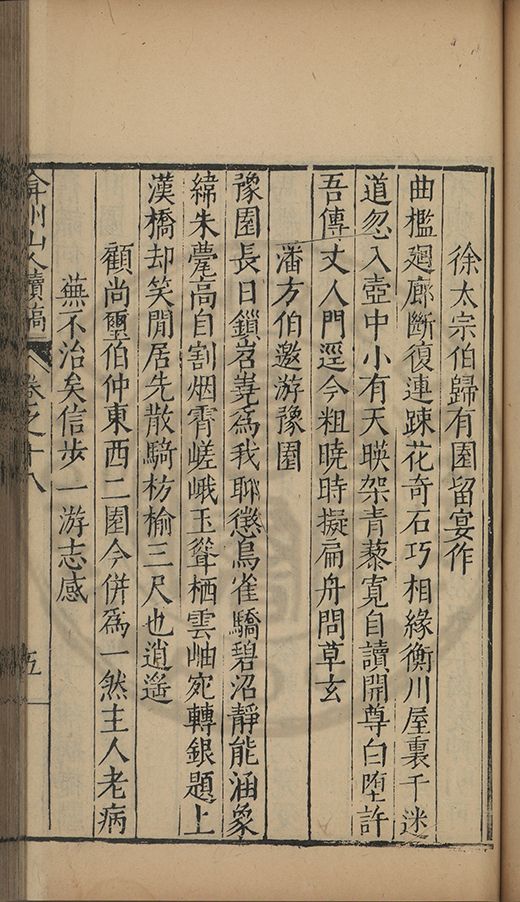 徐太宗伯歸有園留宴作
曲檻廻廊斷復連踈花奇石巧相緣衡川屋裏千迷
道忽入壺中小有天暎架青藜寛自讀開尊白墮許
吾傳丈人門逕今粗曉時擬扁舟問草玄
潘方伯邀游豫園
豫園長日鎖岧嶤爲我聊懲鳥雀驕碧沼靜能涵象
緯朱甍高自割烟霄嵯峨玉聳栖雲岫宛轉銀題上
漢橋却笑閒居先散騎枋榆三尺也逍遙
顧尚璽伯仲東西二園今併爲一然主人老病
蕪不治矣信步一游志感
弇州山人續稿
卷之十八
五